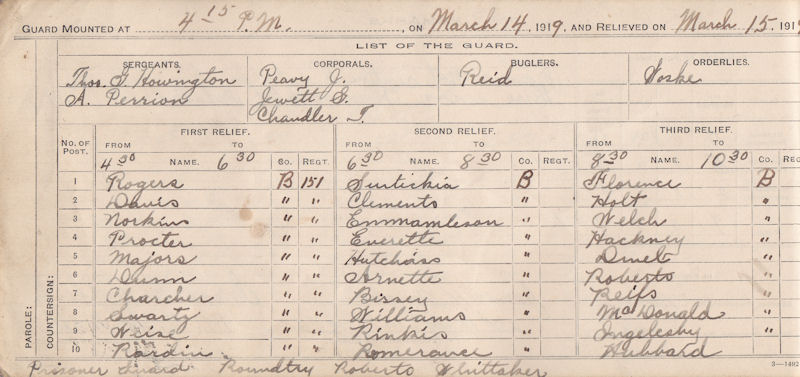 GUARD MOUNTED AT 4 15 P.M. , ON March 14, 1919, AND RELIEVED ON March 15, 191
LIST OF THE GUARD.
SERGEANTS. CORPORALS. BUGLERS. ORDERLIES.
Thos. G Howington Peavy J. Reid Noske
A. Perrion Jewett S.
Chandler T.
No. of Post. FIRST RELIEF. SECOND RELIEF. THIRD RELIEF.
FROM TO FROM TO FROM TO
4 30 NAME. 6 30 Co. REGT. 6 30 NAME. 8 30 Co. REGT. 8 30 NAME. 10 30 Co.
1 Rogers B 151 B Florence B
2 Davis " " Clements " Holt "
3 Norkins " " Emmamleson " Welch "
4 Procter " " Everette " Hackney "
5 Majors " " Hutchins " "
6 Dunn " " Arnette " Roberts "
7 Charcher " " Bissey " Reifs "
8 Swarty " " Williams " McDonald "
9 Weise " " Rinkis " Inglesby "
10 Rardin " " Romerance " Hubbard "
Prisoner Guard Roundtry Roberts Whittaker
PAROLE:
COUNTERSIGN:
3—1492